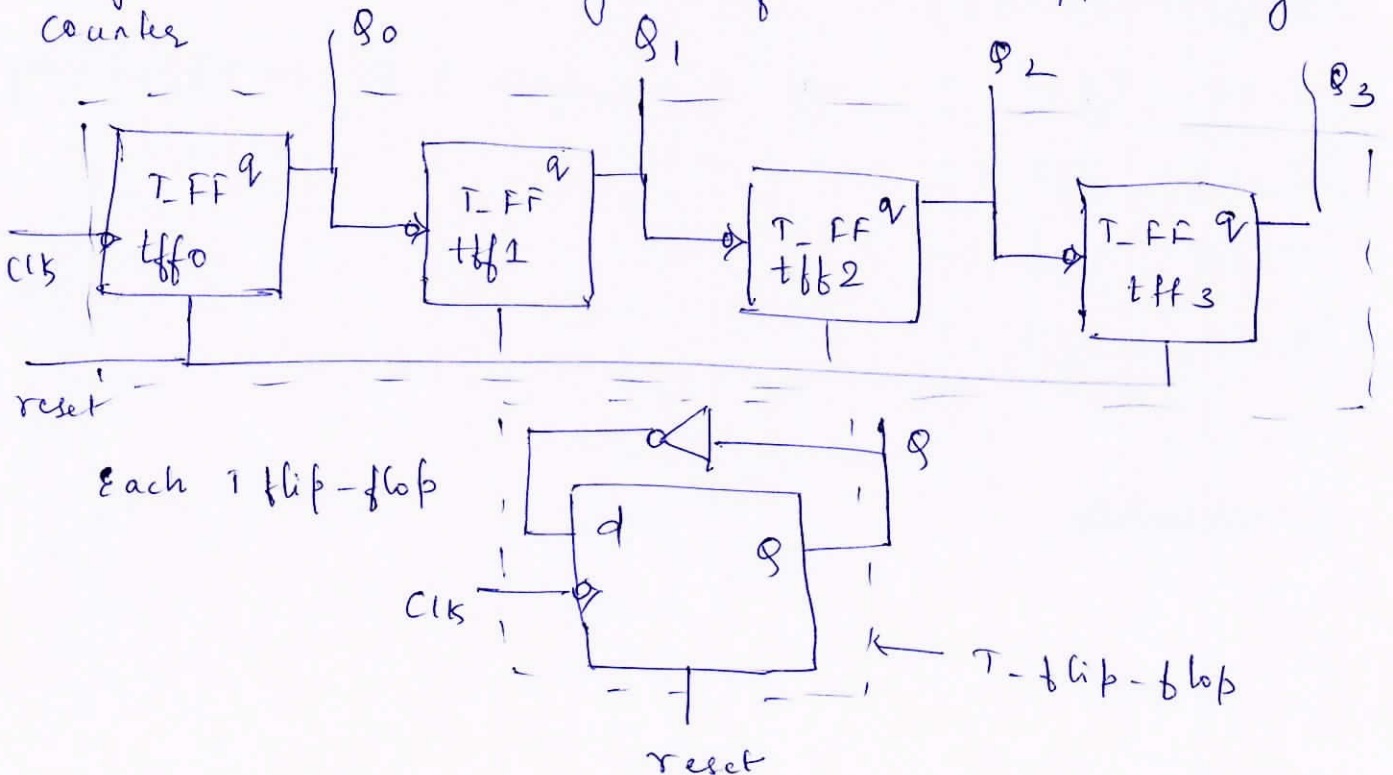 Counter
Q0
Q1
Q2
Q3
T_FF q
tff0
T_FF q
tff1
T_FF q
tff2
T_FF q
tff3
Clk
reset
Each T flip-flop
Q
d
Q
Clk
T-flip-flop
reset